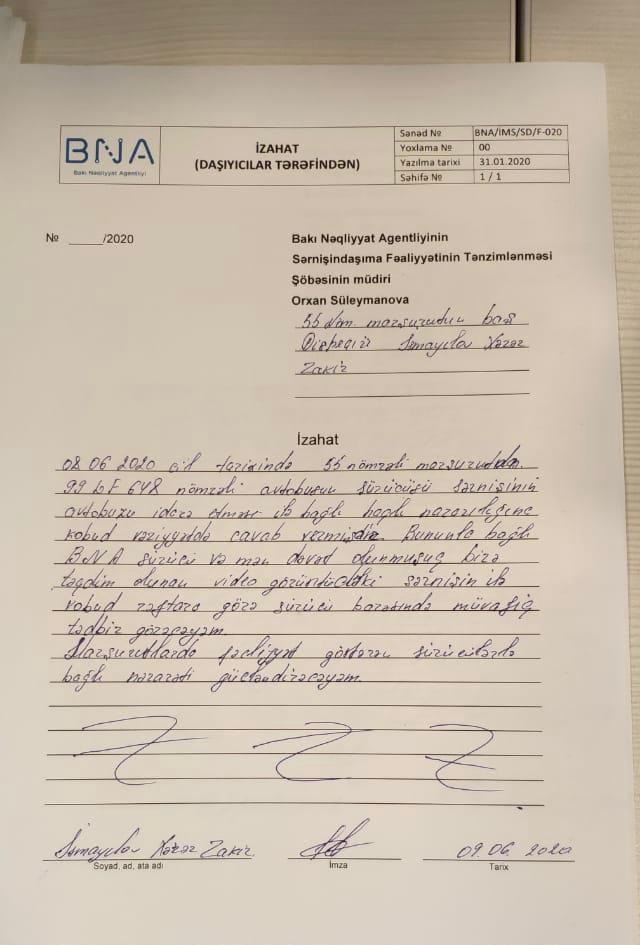 BNA
Bakı Nəqliyyat Agentliyi
İZAHAT
(DAŞIYICILAR TƏRƏFİNDƏN)
Sənəd № BNA/İMS/SD/F-020
Yoxlama № 00
Yazılma tarixi 31.01.2020
Səhifə № 1 / 1
№ _____/2020
Bakı Nəqliyyat Agentliyinin
Sərnişindaşıma Fəaliyyətinin Tənzimlənməsi
Şöbəsinin müdiri
Orxan Süleymanova
55 nöm. marşurudun baş
Dispeçiri İsmayılov Xəzər
Zakir
İzahat
08 06 2020 cil tarixində 55 nömrəli marşurutda.
99 LF 648 nömrəli avtobusun sürücüsü sərnişinin
avtobuzu idarə etməsi ilə bağlı bağlı narazılığına
kobud vəziyyətdə cavab vermişdir. Bununla bağlı
BNA sürücü və mən dəvət olunmuşuq bizə
təqdim olunan video görüntüdəki sərnişin ilə
kobud rəftara görə sürücü barəsində müvafiq
tədbir görəcəyəm.
Marşurutlarda fəaliyyət göstərən sürücülərlə
bağlı nəzarəti gücləndirəcəyəm.
İsmayılov Xəzər Zakir 09.06.2020
Soyad, ad, ata adı İmza Tarix